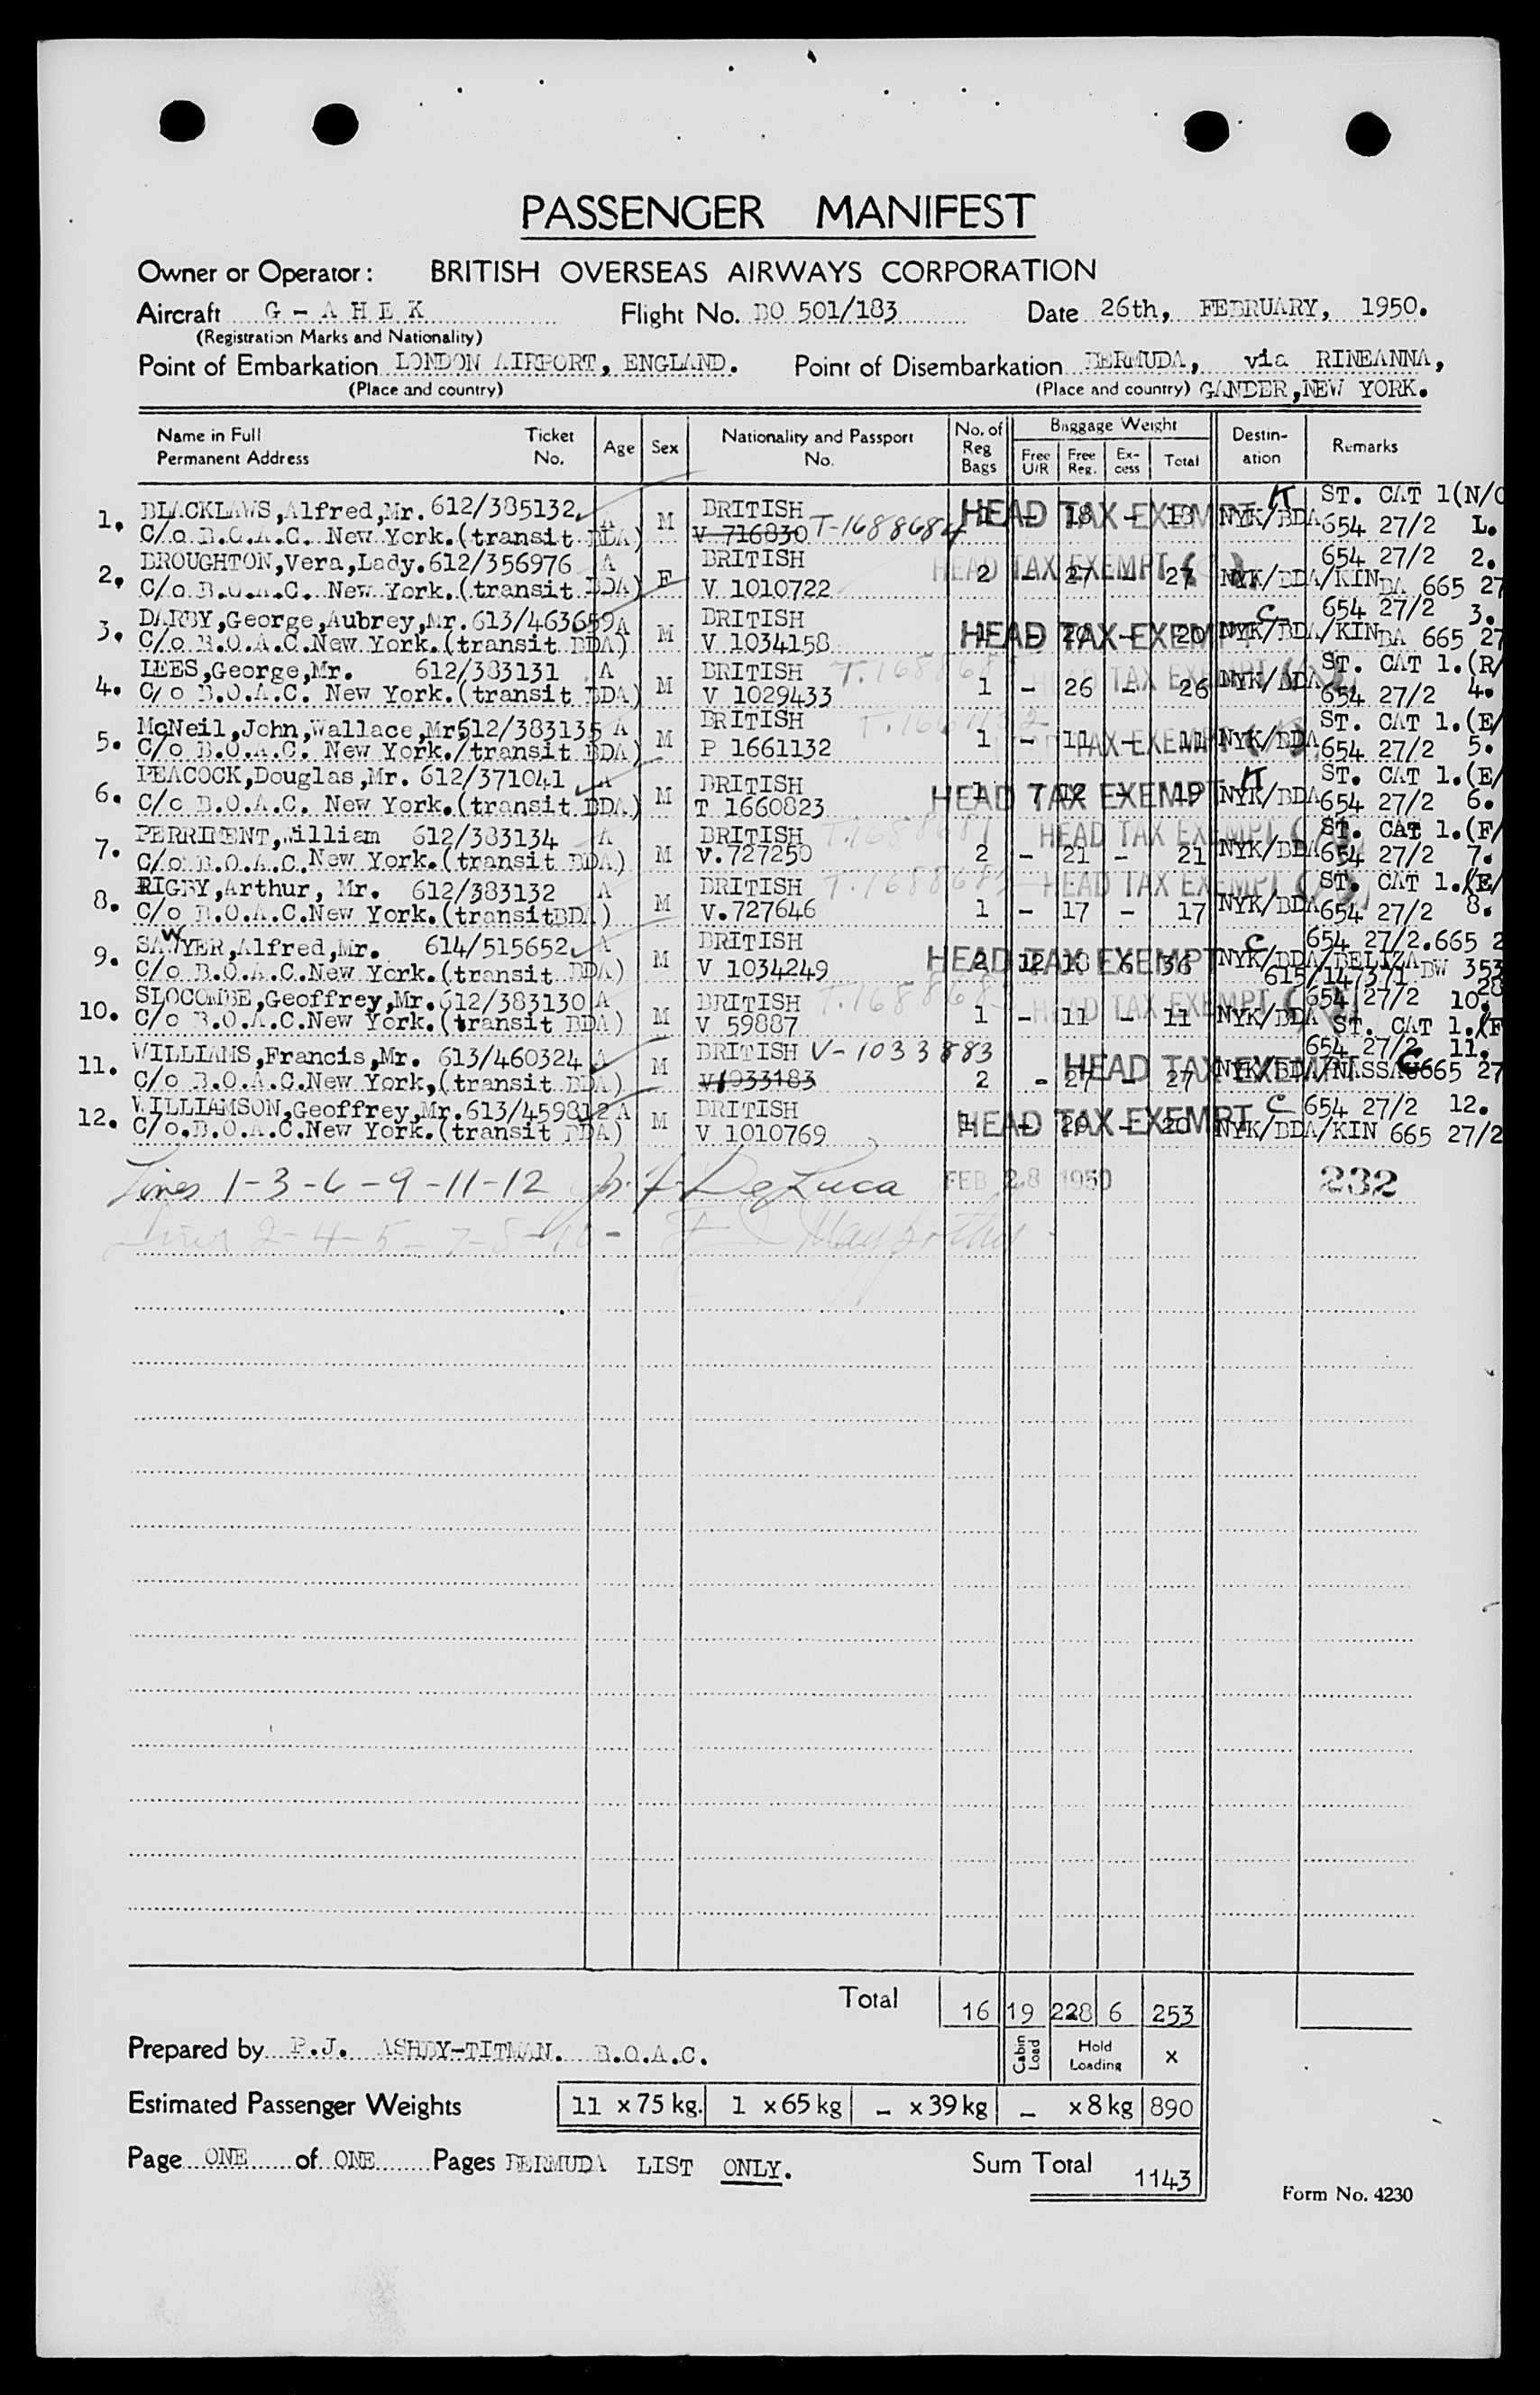 PASSENGER MANIFEST
Owner or Operator: BRITISH OVERSEAS AIRWAYS CORPORATION
Aircraft G - A H E K Flight No. BO 501/183 Date 26th, FEBRUARY, 1950.
(Registration Marks and Nationality)
Point of Embarkation LONDON AIRPORT, ENGLAND. Point of Disembarkation BERMUDA, via RINEANNA,
(Place and country) (Place and country) GANDER, NEW YORK.
Name in Full Permanent Address Ticket No. Age Sex Nationality and Passport No. No. of Reg Bags Baggage Weight Free U/R Free Reg. Ex-cess Total Destin-ation Remarks
1. BLACKLAWS, Alfred, Mr. 612/385132 A M BRITISH HEAD TAX EXEMPT K ST. CAT 1(N/C
C/o B.O.A.C. New York. (transit BDA) V 716830 T-1688684 1 - 18 - 18 NYK/BDA 654 27/2 L.
2. BROUGHTON, Vera, Lady. 612/356976 A F BRITISH HEAD TAX EXEMPT 654 27/2 2.
C/o B.O.A.C. New York. (transit BDA) V 1010722 2 - 27 - 27 NYK/BDA/KIN BA 665 27
3. DARBY, George, Aubrey, Mr. 613/463659 A M BRITISH HEAD TAX EXEMPT C 654 27/2 3.
C/o B.O.A.C. New York. (transit BDA) V 1034158 1 - 20 - 20 NYK/BDA/KIN BA 665 27
4. LEES, George, Mr. 612/383131 A M BRITISH HEAD TAX EXEMPT ST. CAT 1.(R/
C/o B.O.A.C. New York. (transit BDA) V 1029433 1 - 26 - 26 NYK/BDA 654 27/2 4.
5. McNeil, John, Wallace, Mr 612/383135 A M BRITISH T.1661132 ST. CAT 1.(E/
C/o B.O.A.C. New York. /transit BDA) P 1661132 1 - 11 - 11 TAX EXEMPT NYK/BDA 654 27/2 5.
6. PEACOCK, Douglas, Mr. 612/371041 A M BRITISH HEAD TAX EXEMPT K ST. CAT 1.(E/
C/o B.O.A.C. New York. (transit BDA) T 1660823 1 7 12 - 19 NYK/BDA 654 27/2 6.
7. PERRIMENT, William 612/383134 A M BRITISH T.1688681 HEAD TAX EXEMPT ST. CAT 1.(F/
C/o B.O.A.C. New York. (transit BDA) V.727250 2 - 21 - 21 NYK/BDA 654 27/2 7.
8. RIGBY, Arthur, Mr. 612/383132 A M BRITISH HEAD TAX EXEMPT ST. CAT 1.(E/
C/o B.O.A.C. New York. (transit BDA) V.727646 1 - 17 - 17 NYK/BDA 654 27/2 8.
9. SAWYER, Alfred, Mr. 614/515652 A M BRITISH HEAD TAX EXEMPT C 654 27/2. 665 2
C/o B.O.A.C. New York. (transit BDA) V 1034249 2 12 18 6 36 NYK/BDA/BELIZA BW 353
615/147371 28
10. SLOCOMBE, Geoffrey, Mr. 612/383130 A M BRITISH HEAD TAX EXEMPT 654 27/2 10.
C/o B.O.A.C. New York. (transit BDA) V 59887 1 - 11 - 11 NYK/BDA ST. CAT 1.(F
11. WILLIAMS, Francis, Mr. 613/460324 A M BRITISH V-1033883 HEAD TAX EXEMPT 654 27/2 11.
C/o B.O.A.C. New York, (transit BDA) V1933183 2 - 27 - 27 NYK/BDA/NASSA C 665 27
12. WILLIAMSON, Geoffrey, Mr. 613/459812 A M BRITISH HEAD TAX EXEMPT C 654 27/2 12.
C/o. B.O.A.C. New York. (transit BDA) V 1010769 1 - 20 - 20 NYK/BDA/KIN 665 27/2
Lines 1-3-6-9-11-12 DeLuca FEB 28 1950 232
Lines 2-4-5-7-8-10-
Total 16 19 228 6 253
Cabin Load Hold Loading x
Prepared by P.J. ASHBY-TITMAN. B.O.A.C.
Estimated Passenger Weights 11 x 75 kg. 1 x 65 kg - x 39 kg - x 8 kg 890
Page ONE of ONE Pages BERMUDA LIST ONLY. Sum Total 1143
Form No. 4230